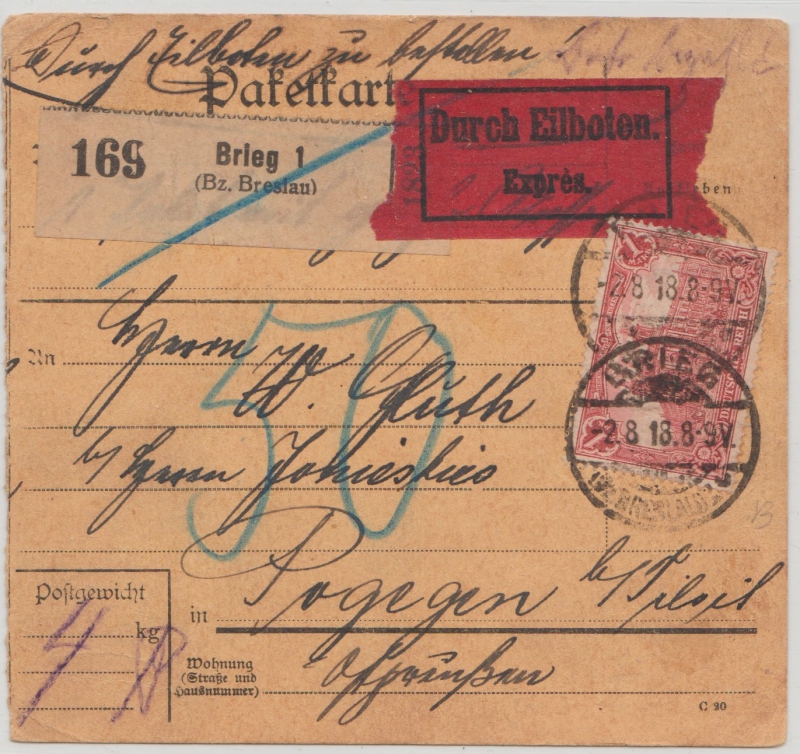 Durch Eilboten zu bestellen!
Paketkarte
Durch Eilboten.
Exprès.
169 Brieg 1
(Bz. Breslau)
1 MARK
DEUTSCHES REICH
-2.8 18.8-9V.
BRIEG
-2.8 18.8-9V.
(BZ. BRESLAU)
50
An Herrn
W. Gluth
b/ Herrn
Postgewicht
4 kg
in Pogegen b/Tilsit
Wohnung
(Straße und
Hausnummer)
Ostpreußen
C 20